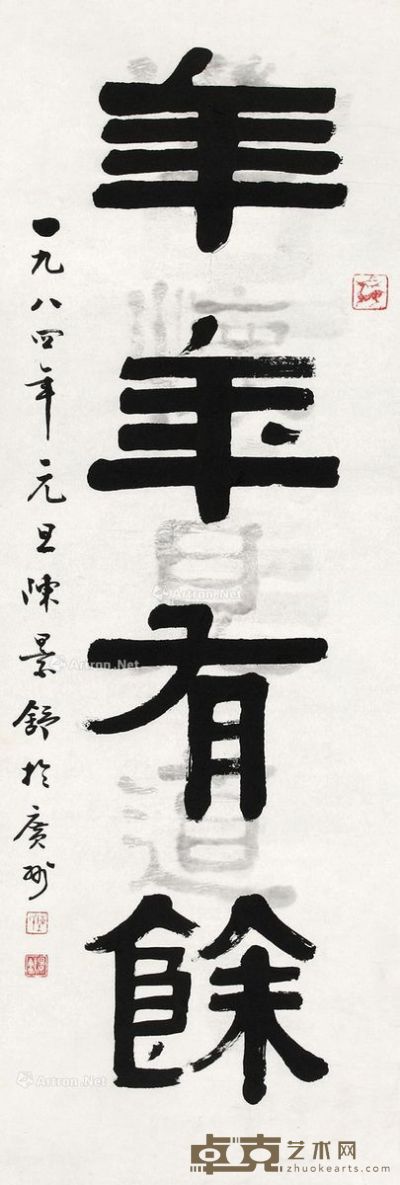 年年有餘
一九八四年元旦陳景舒於廣州
Artron.Net
Artron.Net
Artron.Net
Artron.Net
卓克艺术网
zhuokearts.com